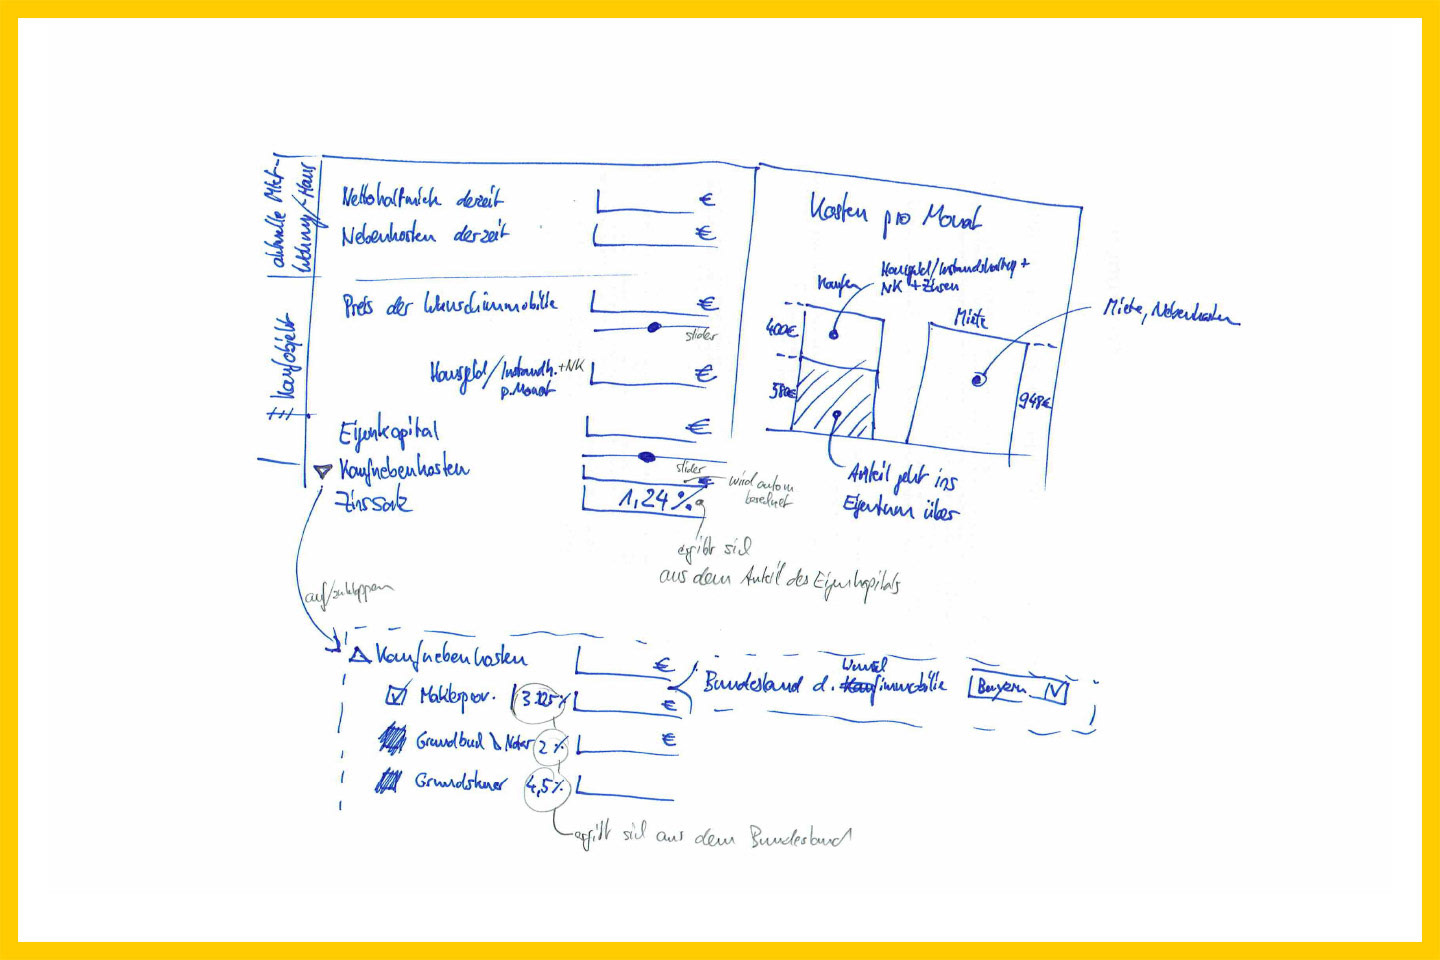 aktuelle Miet-
Wohnung/-Haus
Nettokaltmiete derzeit €
Nebenkosten derzeit €
Kaufobjekt
Preis der Wunschimmobilie €
slider
Hausgeld/Instandh. +NK €
p. Monat
Eigenkapital €
slider
Kaufnebenkosten €
wird autom
berechnet
Zinssatz 1,24%
ergibt sich
aus dem Anteil des Eigenkapitals
Kosten pro Monat
Kaufen
Hausgeld/Instandhaltung +
NK + Zinsen
Miete
Miete, Nebenkosten
400€
380€
948€
Anteil geht ins
Eigentum über
auf/zuklappen
Kaufnebenkosten €
Maklerprov. €
Grundbuch & Notar 2% €
Grundsteuer 4,5%
ergibt sich aus dem Bundesland
Bundesland d. immobilie Bayern